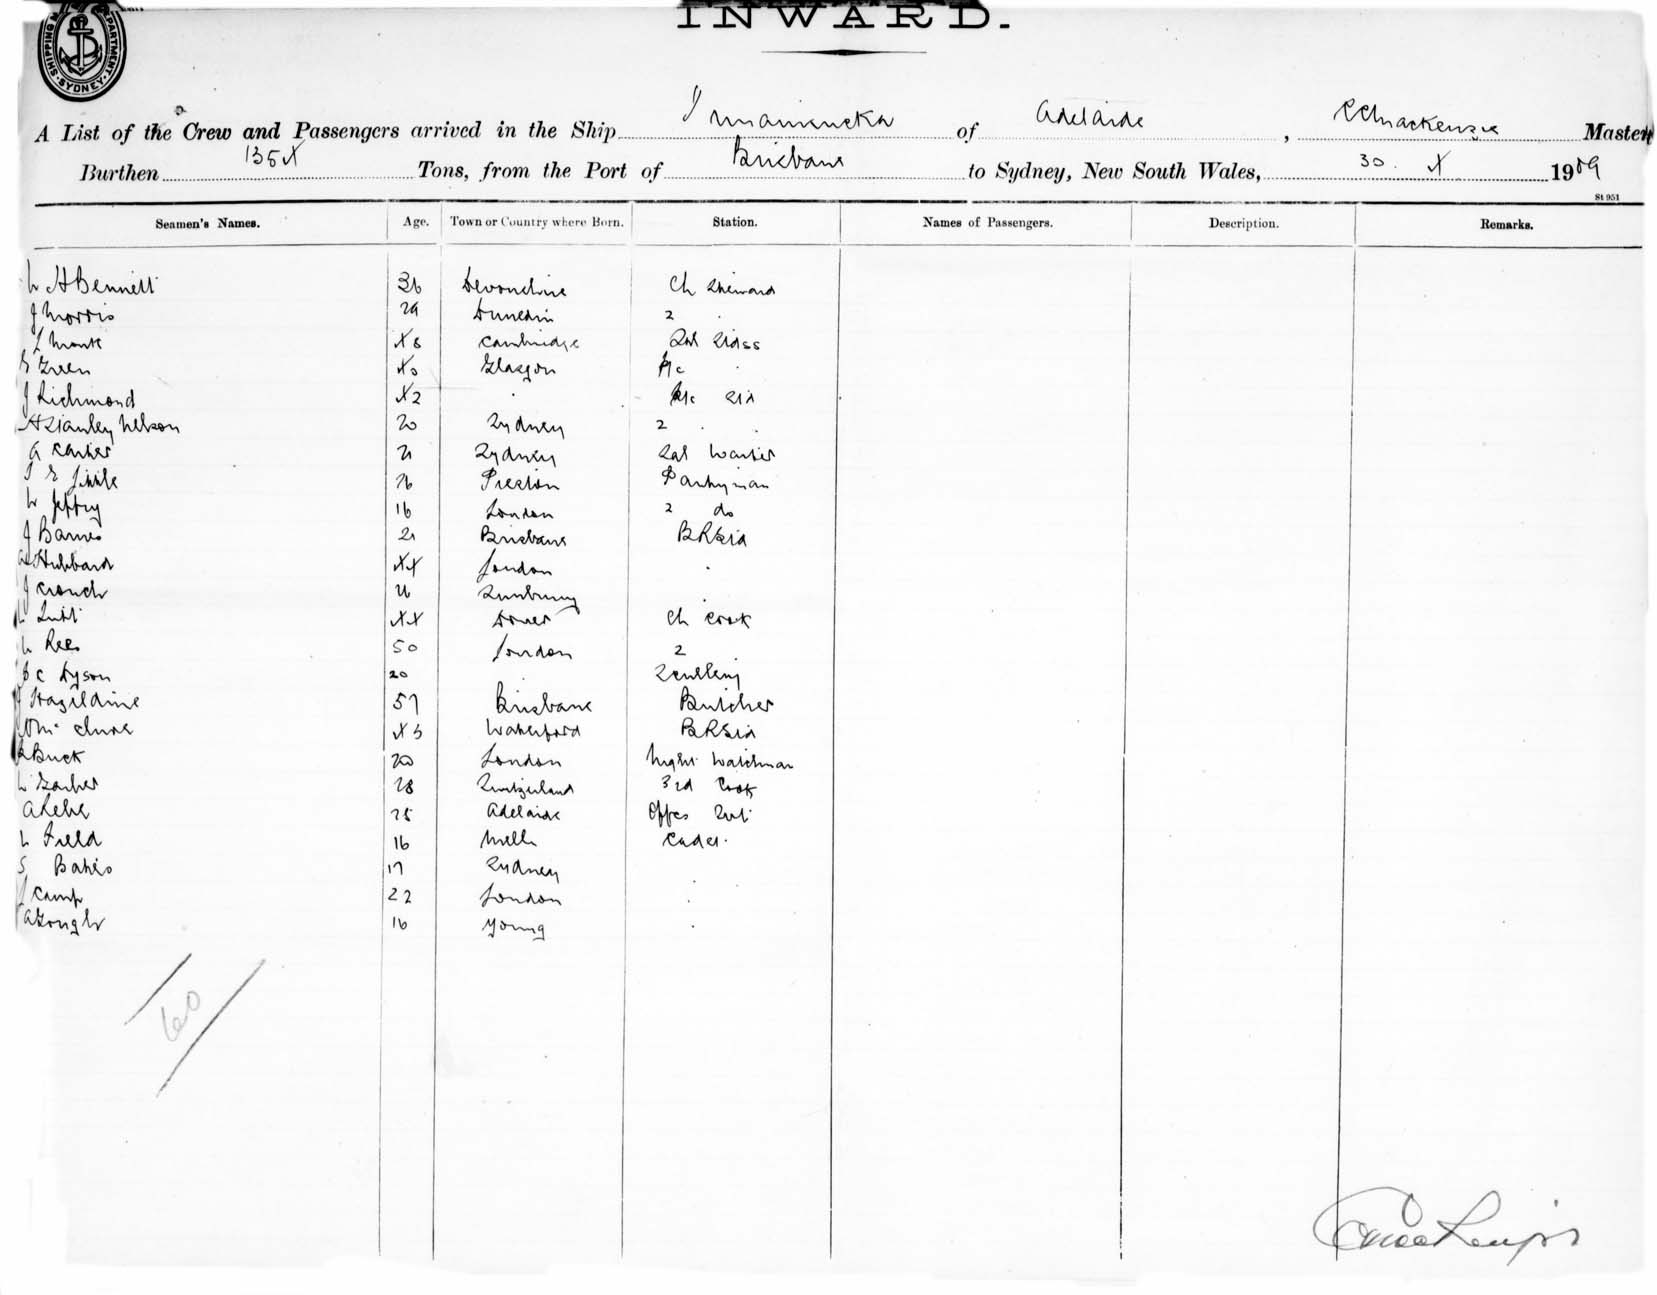 INWARD.
SHIPPING DEPARTMENT SYDNEY
A List of the Crew and Passengers arrived in the Ship Innamincka of Adelaide, Mackenzie Master
Burthen Tons, from the Port of Brisbane to Sydney, New South Wales, 30. 1909
St 951
Seamen's Names. Age. Town or Country where Born. Station. Names of Passengers. Description. Remarks.
W H Bennett 36 Devonshire Ch Steward
J Morris 29 Dunedin 2 .
Cambridge
Green Glasgow
J Richmond .
H Stanley Nelson 20 Sydney 2 . .
A Carter 21 Sydney Sal Waiter
26 Preston Pantryman
W Jeffry 16 London 2 do
J Barnes 21 Brisbane B R Std
Hubbard London .
J Crouch .
Dover Ch Cook
W Rees 50 London 2
Dyson 20 . Scullery
J Hazeldine 57 Brisbane Butcher
Waterford B R Std
R Buck 20 London Night Watchman
W 28 Switzerland 3rd Cook
A 25 Adelaide Offes
W Field 16 Melb Cadet.
S 17 Sydney
J Camp 22 London .
A Gough 16 Young .
60